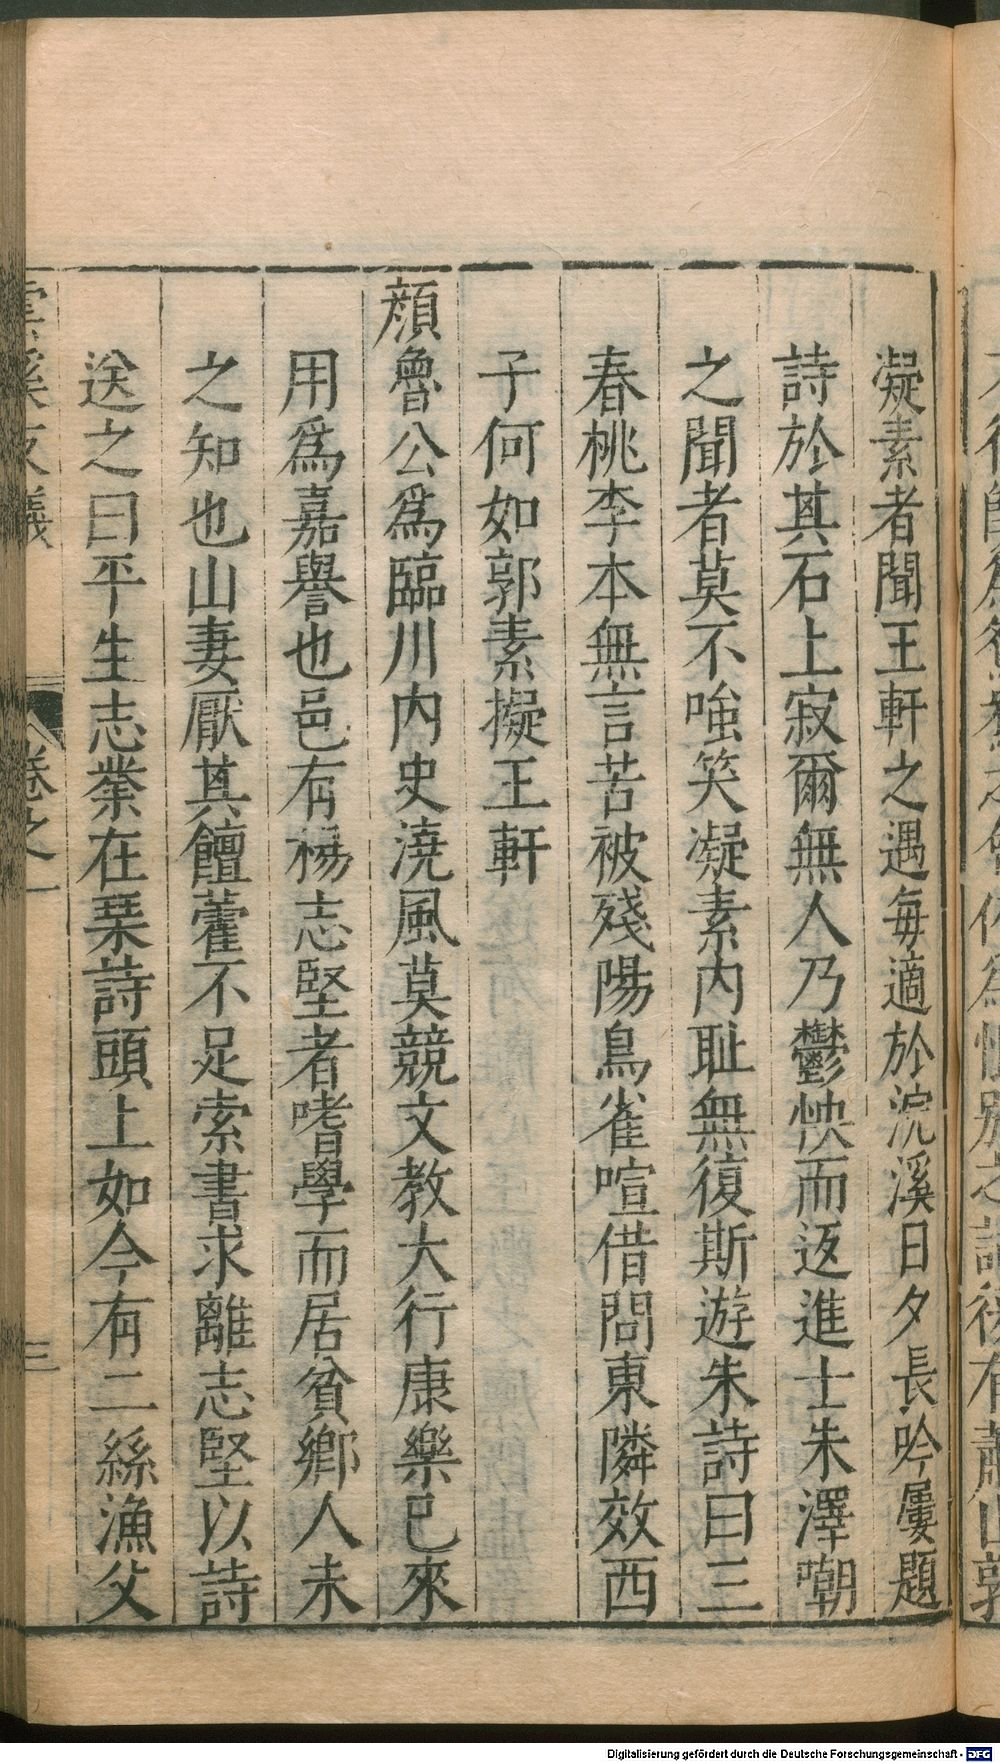 凝素者聞王軒之遇每適於浣溪日夕長吟屢題
詩於其石上寂爾無人乃鬱怏而返進士朱澤嘲
之聞者莫不嗤笑凝素内耻無復斯遊朱詩曰三
春桃李本無言苦被殘陽鳥雀喧借問東隣效西
子何如郭素擬王軒
顔魯公爲臨川内史澆風莫競文教大行康樂已來
用爲嘉譽也邑有楊志堅者嗜學而居貧鄉人未
之知也山妻厭其饘藿不足索書求離志堅以詩
送之曰平生志業在琹詩頭上如今有二絲漁父
雲溪友議 卷之一 三
Digitalisierung gefördert durch die Deutsche Forschungsgemeinschaft - DFG